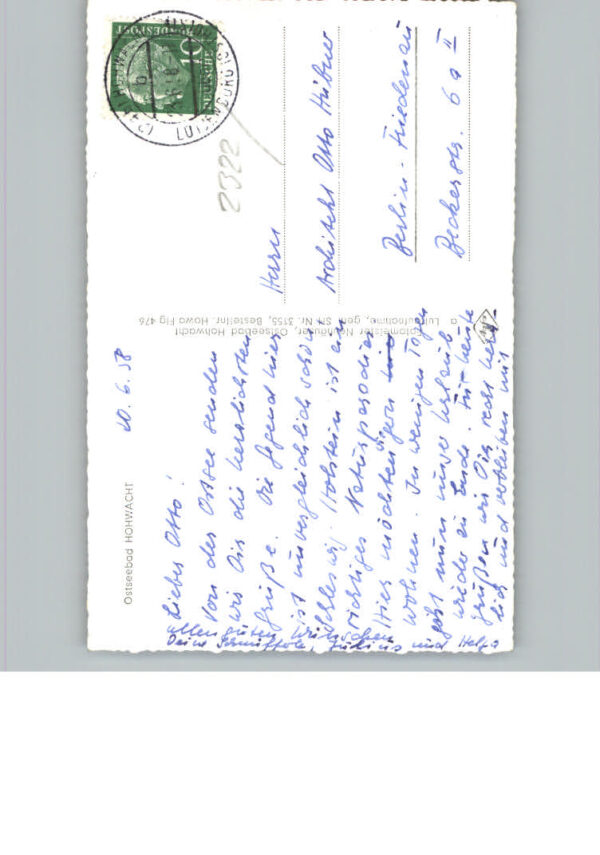 Ostseebad HOHWACHT
20.6.58
Lieber Otto!
Von der Ostsee senden
wir Dir die herzlichsten
Grüße. Die Gegend hier
ist unvergleichlich schön.
Schleswig-Holstein ist ein
richtiges Naturparadies.
Hier möchten wir gern
wohnen. In wenigen Tagen
geht nun unser Urlaub
wieder zu Ende. Für heute
grüßen wir Dich recht herz-
lich und verbleiben mit
allen guten Wünschen
Deine und Helga
Neuhäuser, Ostseebad Hohwacht
Luftaufnahme, gen. SH Nr. 3155, Bestellnr. Howa Flg 476
DEUTSCHE BUNDESPOST
10
2322
Herrn
Architekt Otto Hübner
Berlin-Friedenau
Beckerstr. 6a II